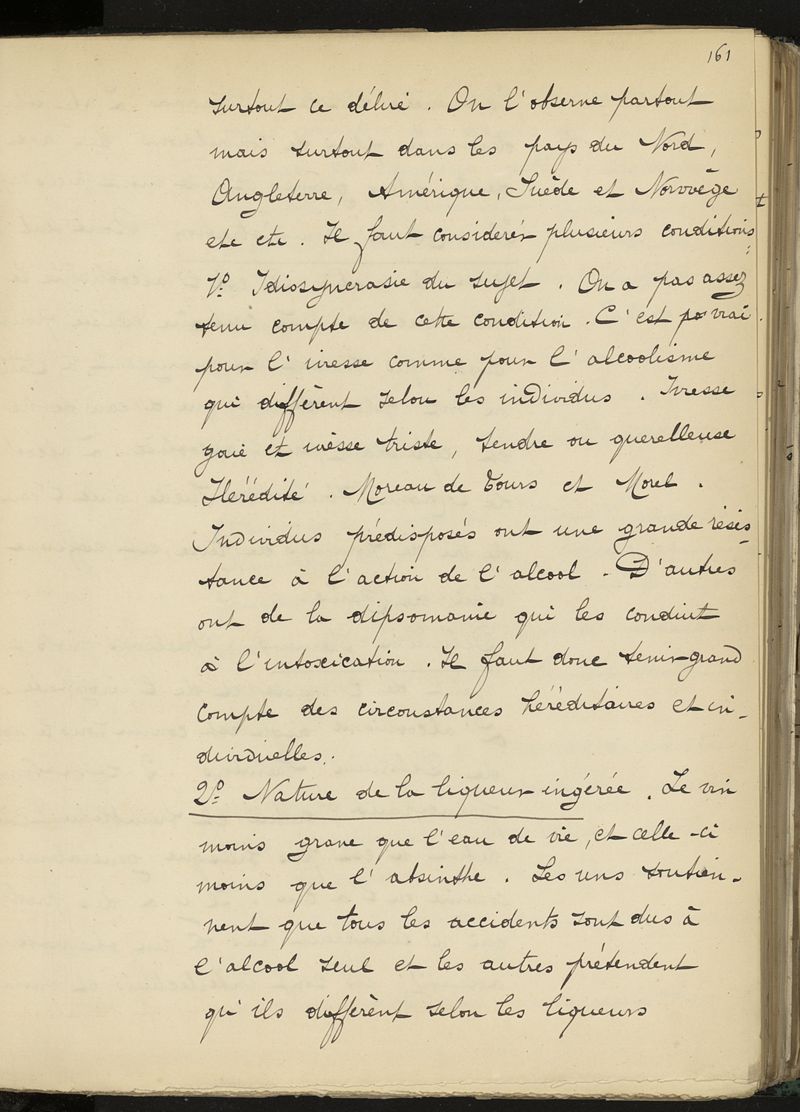 161
surtout ce délire. On l'observe partout
mais surtout dans les pays du Nord,
Angleterre, Amérique, Suède et Norwège
etc etc. Il faut considerér plusieurs conditions:
1º Idiossyncrasie du sujet. On a pas assez
tenu compte de cette condition. C'est vrai
pour l'ivresse comme pour l'alcoolisme
qui différent selon les individus. Ivresse
gaie et ivèsse triste, tendre ou querelleuse
Hérédité. Moreau de Tours et Morel.
Individus prédisposés ont une grande résis-
tance à l'action de l'alcool. D'autres
ont de la dipsomanie qui les conduit
à l'intoxication. Il faut donc tenir grand
compte des circonstances héréditaires et in-
dividuelles.
2º Nature de la liqueur ingérée. Le vin
moins grave que l'eau de vie, et celle-ci
moins que l'absinthe. Les uns soutien-
nent que tous les accidents sont dus à
l'alcool seul et les autres prétendent
qu'ils différent selon les liqueurs